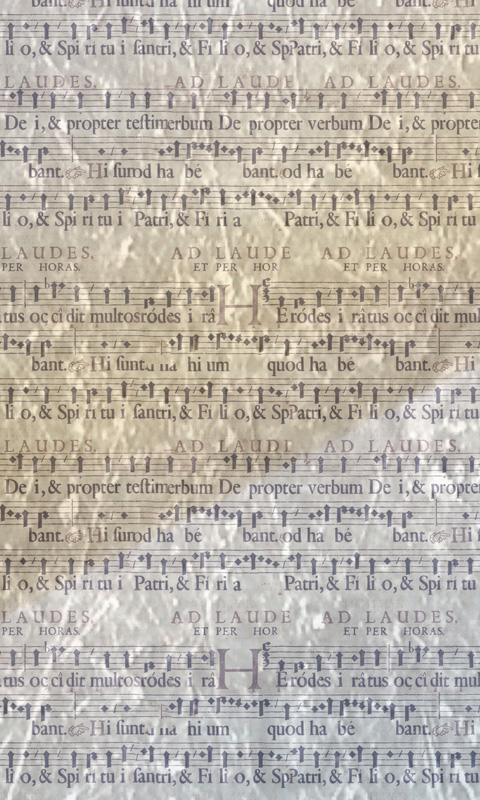 bant. Hi ium quod ha bé bant. Hi
li o, & Spi ri tu i sanctri, & Fi li o, & SpPatri, & Fi li o, & Spi ri tu
LAUDES, AD LAUDE AD LAUDES,
De i, & propter testimerbum De propter verbum De i, & propter
bant. Hi sunod ha bé bant. od ha bé bant. Hi
li o, & Spi ri tu i Patri, & Fi ri a Patri, & Fi li o, & Spi ri tu
LAUDES, AD LAUDE AD LAUDES,
PER HORAS. ET PER HOR ET PER HORAS.
tus oc cî dit multosródes i râ H Eródes i râtus oc cî dit mul
bant. Hi sunt hi um quod ha bé bant. Hi
li o, & Spi ri tu i sanctri, & Fi li o, & SpPatri, & Fi li o, & Spi ri tu
LAUDES, AD LAUDE AD LAUDES,
De i, & propter testimerbum De propter verbum De i, & propter
bant. Hi sunod ha bé bant. od ha bé bant. Hi
li o, & Spi ri tu i Patri, & Fi ri a Patri, & Fi li o, & Spi ri tu
LAUDES, AD LAUDE AD LAUDES,
PER HORAS. ET PER HOR ET PER HORAS.
tus oc cî dit multosródes i râ H Eródes i râtus oc cî dit mul
bant. Hi sunt hi um quod ha bé bant. Hi
li o, & Spi ri tu i sanctri, & Fi li o, & SpPatri, & Fi li o, & Spi ri tu